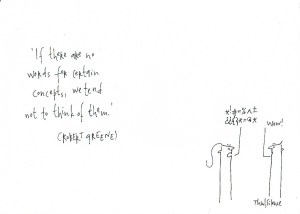 'If there are no
words for certain
concepts, we tend
not to think of them.'
(ROBERT GREENE)
Wow!